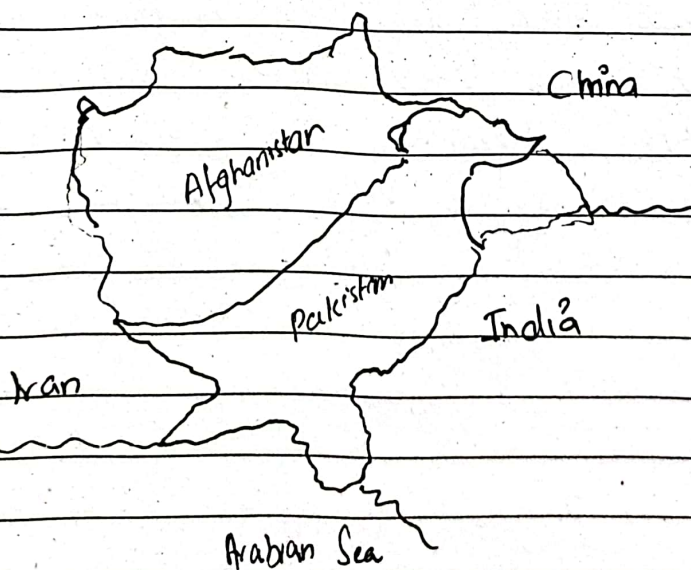 China
Afghanistan
Pakistan
India
Iran
Arabian Sea